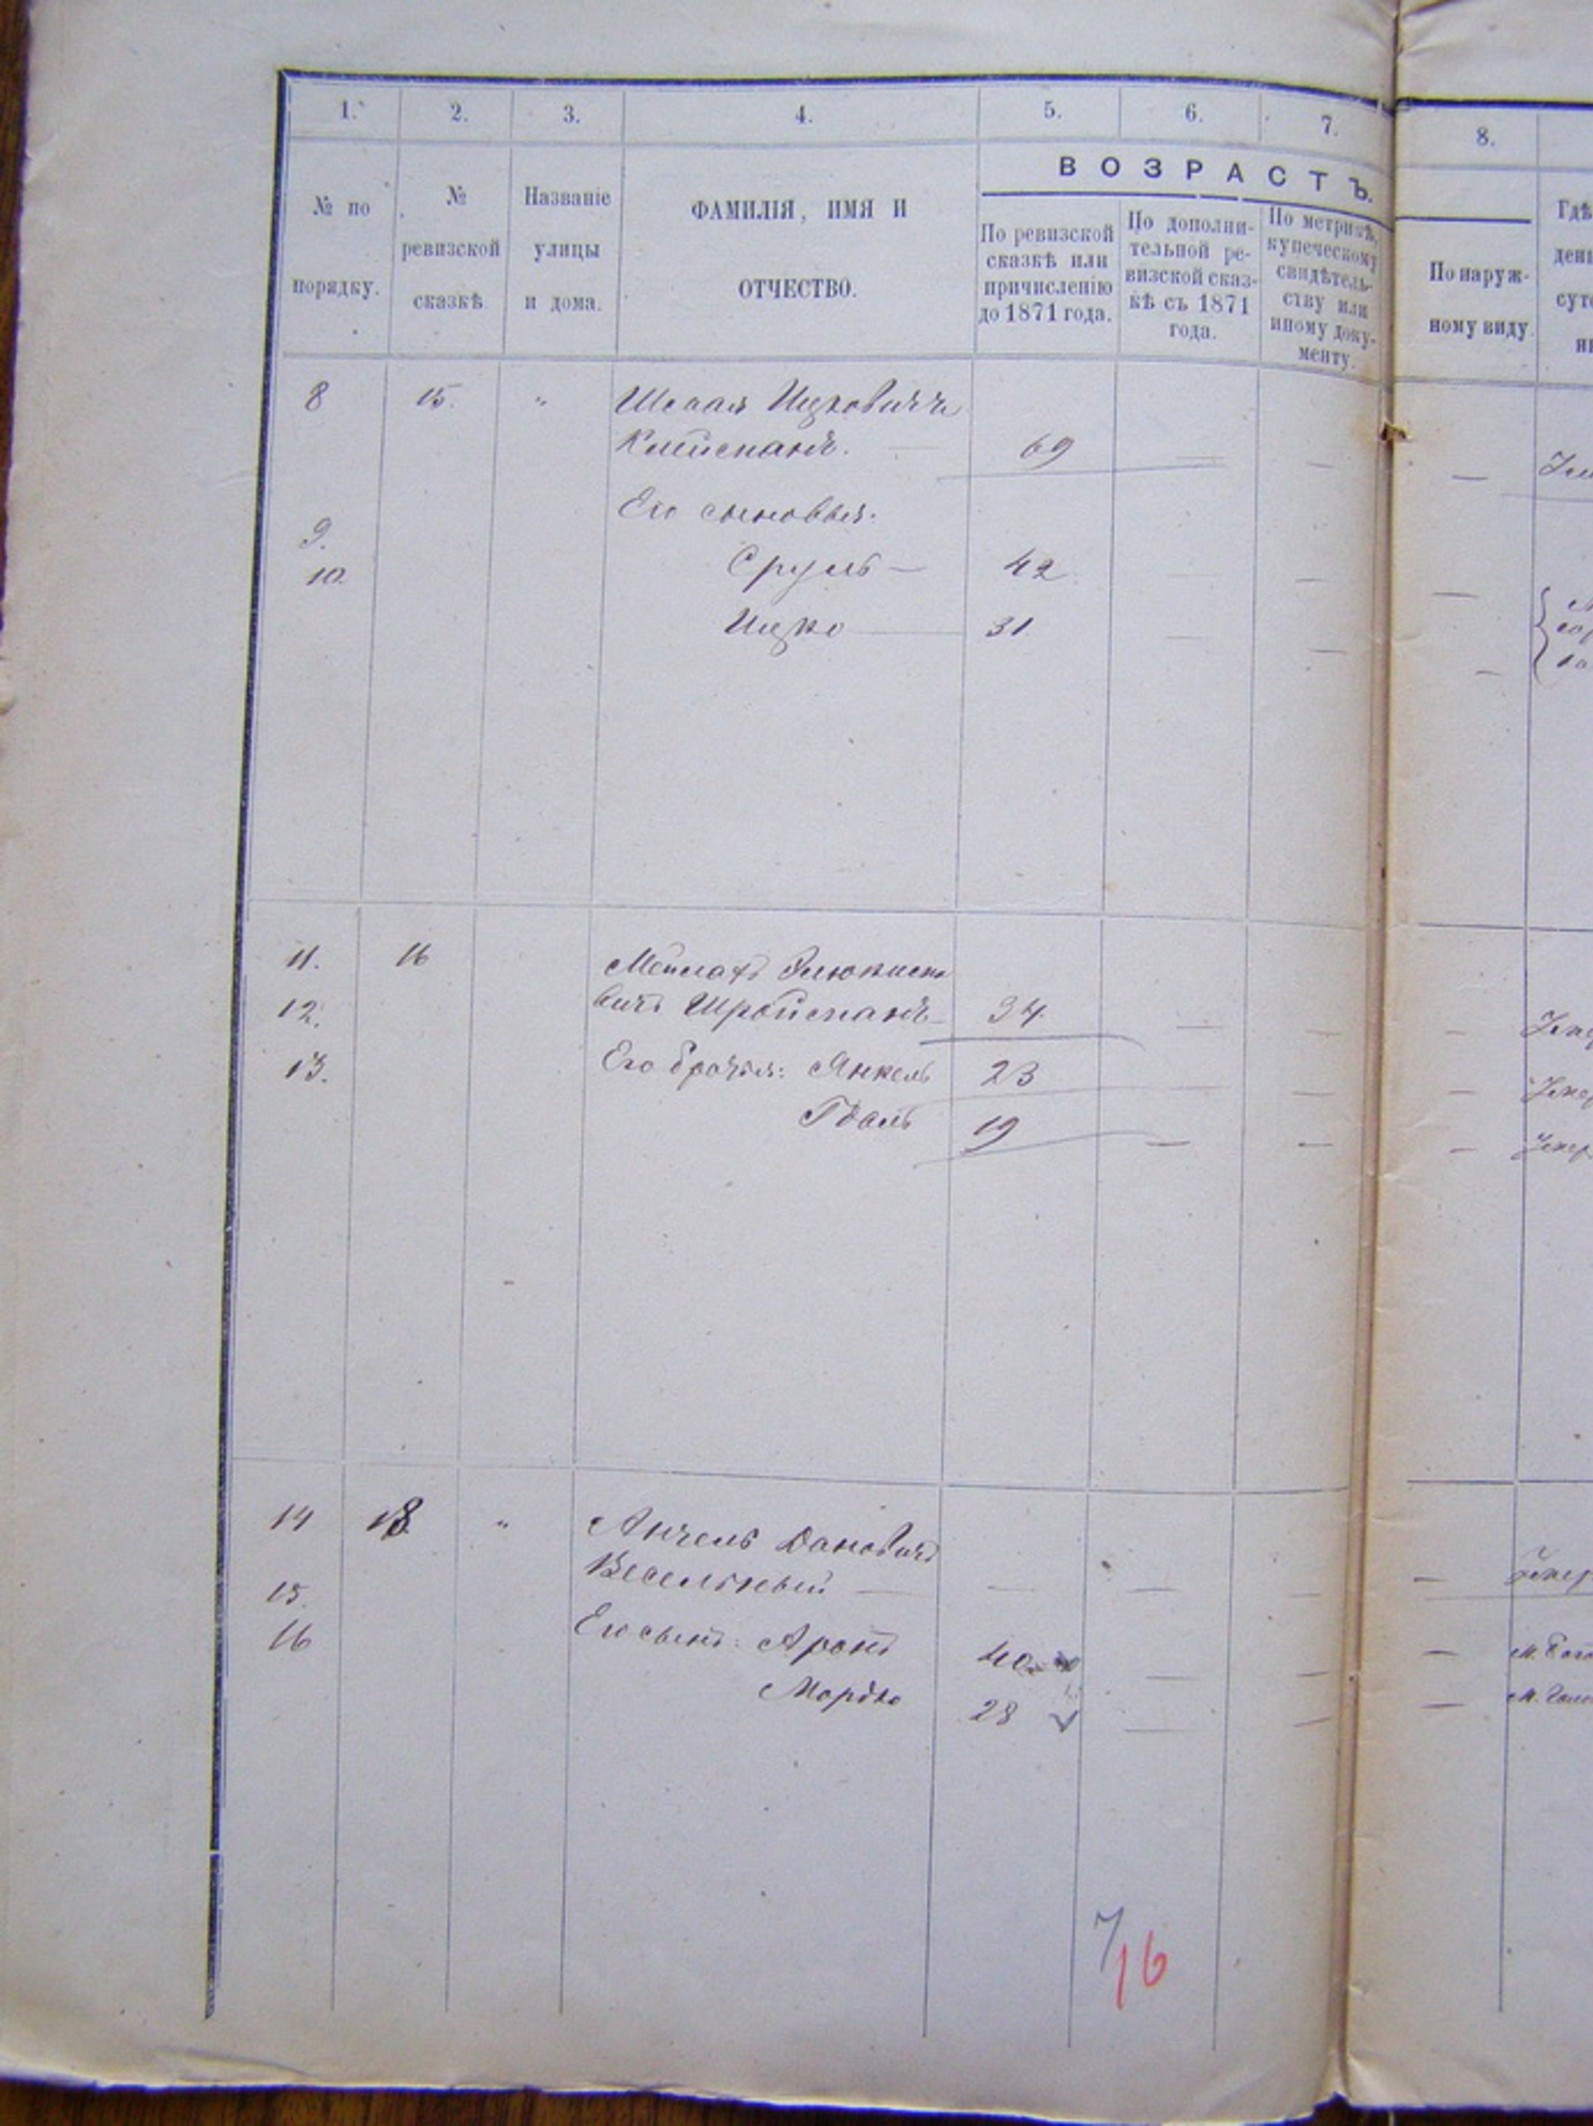 1. 2. 3. 4. 5. 6. 7. 8.
ВОЗРАСТЪ.
№ по порядку.
№ ревизской сказкѣ.
Названіе улицы и дома.
ФАМИЛІЯ, ИМЯ И ОТЧЕСТВО.
По ревизской сказкѣ или причисленію до 1871 года.
По дополнительной ревизской сказкѣ съ 1871 года.
По метрикѣ, купеческому свидѣтельству или иному документу.
По наружному виду.
Гдѣ
8 15. " Ицковичъ
69
Его сыновья:
9.
Сруль — 42
10.
Ицко — 31
11. 16 Мейлахъ
12. вичъ Шройсманъ — 34
13. Его братья: Янкель 23
Гдаль 19
14 18. " Анчель Дановичъ
Весельный —
15.
16 Его сынъ: Аронъ 40
Мордко 28
7/16